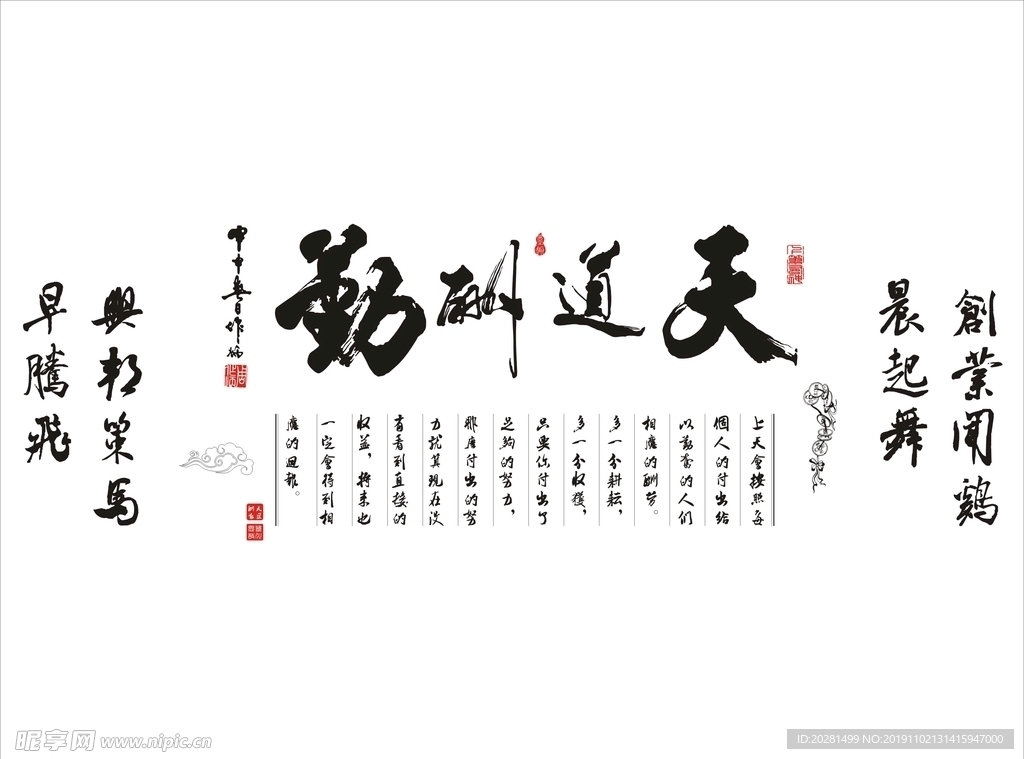 創業聞鷄
晨起舞
天道酬勤
上天會按照每
個人的付出給
以勤奮的人們
相應的酬勞。
多一分耕耘，
多一分收獲，
只要你付出了
足夠的努力，
那應付出的努
力就算現在沒
有看到直接的
收益，將來也
一定會得到相
應的回報。
興邦策馬
早騰飛
昵享网 www.nipic.cn
ID:20281499 NO:20191102131415947000